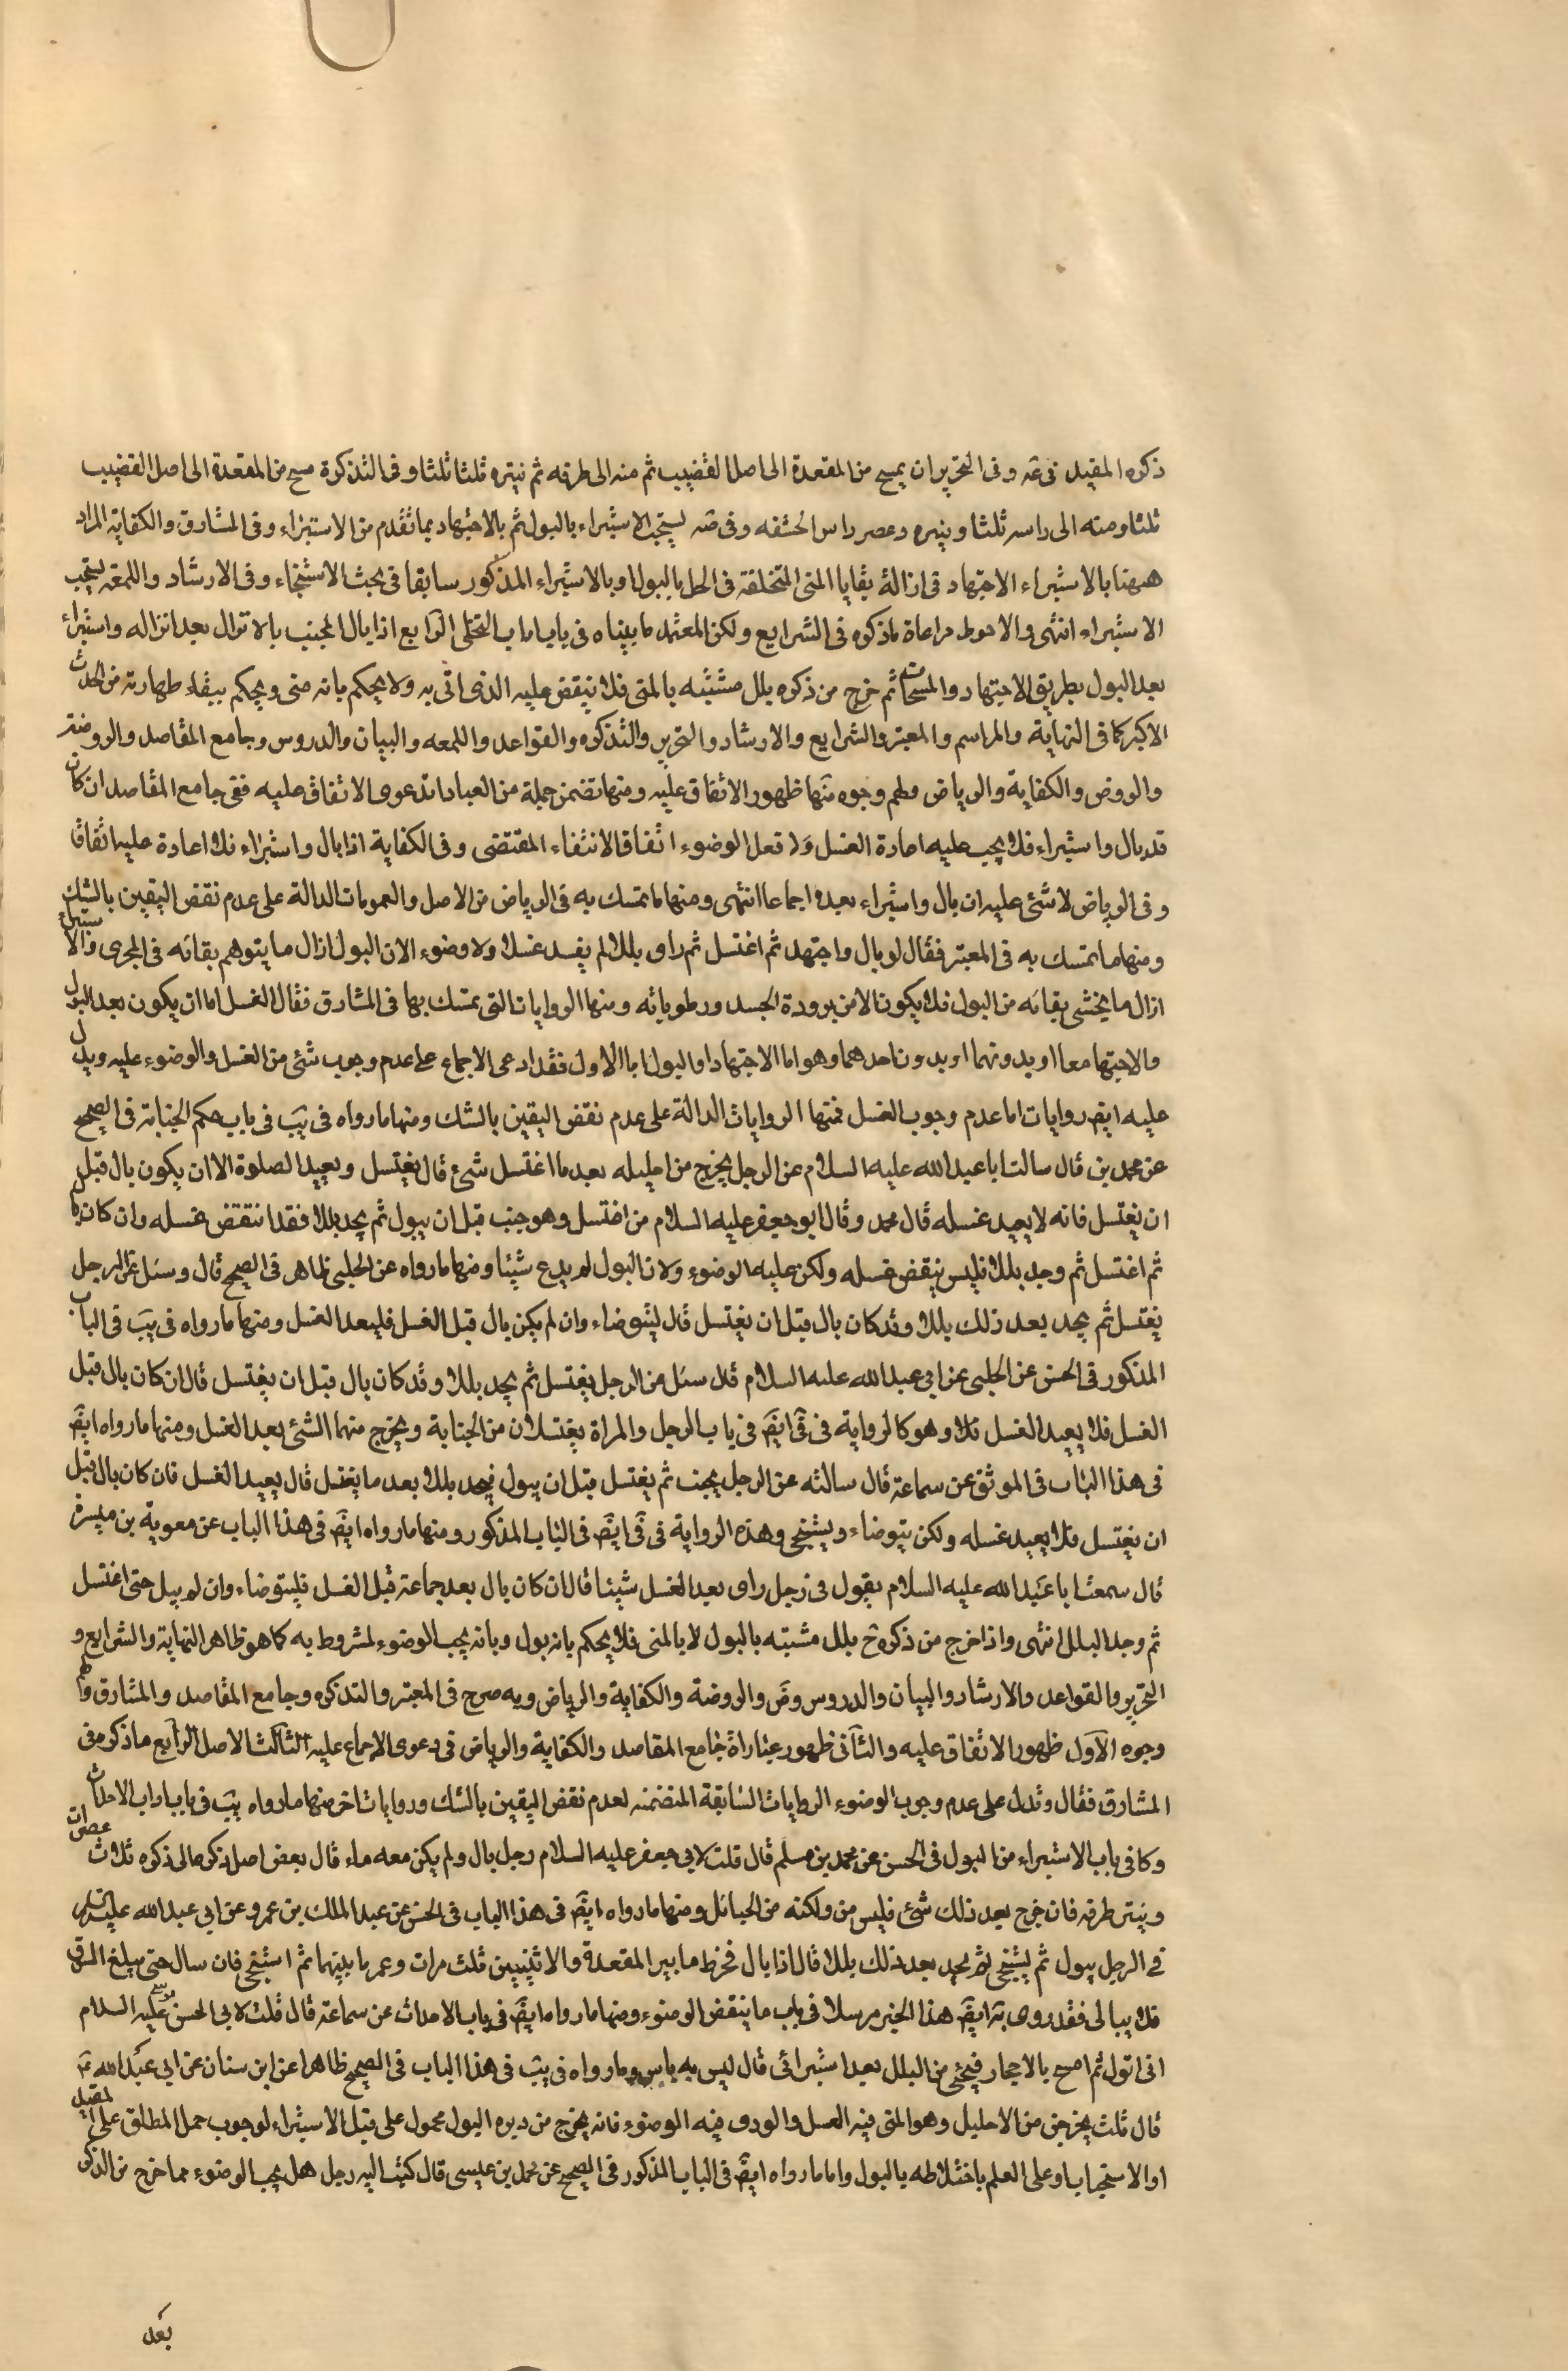 ذكره المفيد فى عه وفى التحرير ان يمسح من المقعدة الى اصل القضيب ثم منه الى طرفه ثم ينتره ثلثا ثلثا وفى التذكرة مسح من المقعدة الى اصل القضيب
ثلثا ومنه الى راسه ثلثا وينتره وعصر راس الحشفه وفى ضه يستحب الاستبراء بالبول ثم بالاجتهاد بما تقدم من الاستبراء وفى المشارق والكفاية المراد
ههنا بالاستبراء الاجتهاد فى ازالة بقايا المنى المتخلفة فى المحل بالبول او بالاستبراء المذكور سابقا فى بحث الاستنجاء وفى الارشاد واللمعة يستحب
الاستبراء انتهى والاحوط مراعاة ماذكره فى الشرايع ولكن المعتمد ما بيناه فى باب اداب التخلى الرابع اذا بال المجنب بالانزال بعد انزاله واستبراء
بعد البول بطريق الاجتهاد والمسحات ثم خرج من ذكره بلل مشتبه بالمنى فلا ينقض عليه الذى اتى به ولا يحكم بانه منى ويحكم ببقاء طهارته من الحدث
الاكبر كما فى النهاية والمراسم والمعتبر والشرايع والارشاد والتحرير والتذكره والقواعد واللمعه والبيان والدروس وجامع المقاصد والروضة
والروض والكفاية والرياض ولهم وجوه منها ظهور الاتفاق عليه ومنها تضمن جملة من العبادات دعوى الاتفاق عليه ففى جامع المقاصد ان كان
قد بال واستبراء فلا يجب عليه اعادة الغسل ولا فعل الوضوء اتفاقا لانتفاء المقتضى وفى الكفاية اذا بال واستبراء فلا اعادة عليه اتفاقا
وفى الرياض لا شئ عليه ان بال واستبراء بعده اجماعا انتهى ومنها ما تمسك به فى الرياض من الاصل والعمومات الدالة على عدم نقض اليقين بالشك
ومنها ما تمسك به فى المعتبر فقال لو بال واجتهد ثم اغتسل ثم راى بللا لم يفسد غسله ولا وضوء لان البول ازال ما يتوهم بقائه فى المجرى والاستبراء
ازال ما يخشى بقائه من البول فلا يكون الا من برودة الجسد ورطوباته ومنها الروايات التى تمسك بها فى المشارق فقال الغسل اما ان يكون بعد البول
والاجتها معا او بدونهما او بدون احدهما وهو اما الاجتهاد او البول اما الاول فقد ادعى الاجماع على عدم وجوب شئ من الغسل والوضوء عليه ويدل
عليه ايض روايات اما عدم وجوب الغسل فمنها الروايات الدالة على عدم نقض اليقين بالشك ومنها مارواه فى يب فى باب حكم الجنابة فى الصحيح
عن محمد بن قال سالت ابا عبد الله عليه السلام عن الرجل يخرج من احليله بعد ما اغتسل شئ قال يغتسل ويعيد الصلوة الا ان يكون بال قبل
ان يغتسل فانه لا يعيد غسله قال محمد وقال ابو جعفر عليه السلام من اغتسل وهو جنب قبل ان يبول ثم يجد بللا فقد انتقض غسله وان كان بال
ثم اغتسل ثم وجد بللا فليس ينقض غسله ولكن عليه الوضوء ولان البول لم يدع شيئا ومنها مارواه عن الحلبى ظاهر فى الصحيح قال وسئل عن الرجل
يغتسل ثم يجد بعد ذلك بللا وقد كان بال قبل ان يغتسل قال ليتوضاء وان لم يكن بال قبل الغسل فليعد الغسل ومنها مارواه فى يب فى الباب
المذكور فى الحسن عن الحلبى عن ابى عبد الله عليه السلام قال سئل عن الرجل يغتسل ثم يجد بللا وقد كان بال قبل ان يغتسل قال ان كان بال قبل
الغسل فلا يعيد الغسل قال وهو كالرواية فى فى ايض فى باب الرجل والمراة يغتسلان من الجنابة ويخرج منهما الشئ بعد الغسل ومنها مارواه ايض
فى هذا الباب فى الموثق عن سماعة قال سالته عن الرجل يجنب ثم يغتسل قبل ان يبول فيجد بللا بعد ما يغتسل قال يعيد الغسل فان كان بال قبل
ان يغتسل فلا يعيد غسله ولكن يتوضاء ويستنجى وهذه الرواية فى فى ايض فى الباب المذكور ومنها مارواه ايض فى هذا الباب عن معوية بن ميسرة
قال سمعت ابا عبد الله عليه السلام يقول فى رجل راى بعد الغسل شيئا قال ان كان بال بعد جماعه قبل الغسل فليتوضاء وان لم يبل حتى اغتسل
ثم وجد البلل انتهى واذا خرج من ذكره ح بلل مشتبه بالبول لا بالمنى فلا يحكم بانه بول وبانه يجب الوضوء لمشروط به كما هو ظاهر النهاية والشرايع و
التحرير والقواعد والارشاد والبيان والدروس وض والروضة والكفاية والرياض وبه صرح فى المعتبر والتذكره وجامع المقاصد والمشارق ولهم
وجوه الاول ظهور الاتفاق عليه والثانى ظهور عباراة جامع المقاصد والكفاية والرياض فى دعوى الاجماع عليه الثالث الاصل الرابع ماذكره فى
المشارق فقال وتدل على عدم وجوب الوضوء الروايات السابقة المتضمنه لعدم نقض اليقين بالشك وروايات اخر منها مارواه يب فى باب اداب الاحداث
وكا فى باب الاستبراء من البول فى الحسن عن محمد بن مسلم قال قلت لابى جعفر عليه السلام رجل بال ولم يكن معه ماء قال يعصر اصل ذكره الى ذكره ثلاث عصرات
وينتر طرفه فان خرج بعد ذلك شئ فليس من ولكنه من الحبائل ومنها مارواه ايض فى هذا الباب فى الحسن عن عبد الملك بن عمرو عن ابى عبد الله عليه السلام
فى الرجل يبول ثم يستنجى ثم يجد بعد ذلك بللا قال اذا بال فخرط ما بين المقعدة والانثيين ثلث مرات وغمز ما بينهما ثم استنجى فان سال حتى يبلغ الساق
فلا يبالى فقد روى به ايض هذا الخبر مرسلا فى باب ما ينقض الوضوء ومنها مارواه ايض فى باب الاحداث عن سماعة قال قلت لابى الحسن موسى عليه السلام
انى ابول ثم امسح بالاحجار فيجئ من البلل بعد استبرائى قال ليس به باس ومارواه فى يب فى هذا الباب فى الصحيح ظاهرا عن ابن سنان عن ابى عبد الله ع
قال ثلث يخرجن من الاحليل وهو المنى فيه الغسل والودى فيه الوضوء فانه يخرج من دبره البول محمول على قبل الاستبراء لوجوب حمل المطلق على المقيد
او الاستحباب او على العلم باختلاطه بالبول واما مارواه ايض فى الباب المذكور فى الصحيح عن محمد بن عيسى قال كتب اليه رجل هل يجب الوضوء مما خرج من الذكر
بعد